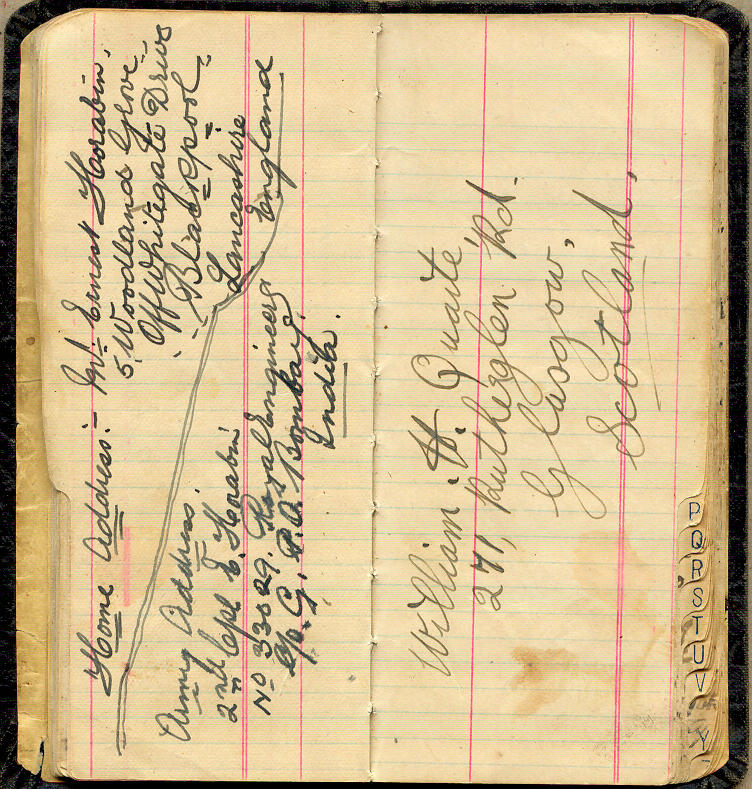 Home Address:- Mr. Ernest Horabin.
5, Woodland Grove
Off Whitegate Drive
Blackpool.
Lancashire
England
Army Address.
2nd Cpl E. Horabin
No 33029. Royal Engineers
c/o G.P.O. Bombay.
India.
William H. Quaite,
271, Rutherglen Rd.
Glasgow,
Scotland,
P
Q
R
S
T
U
V
Y